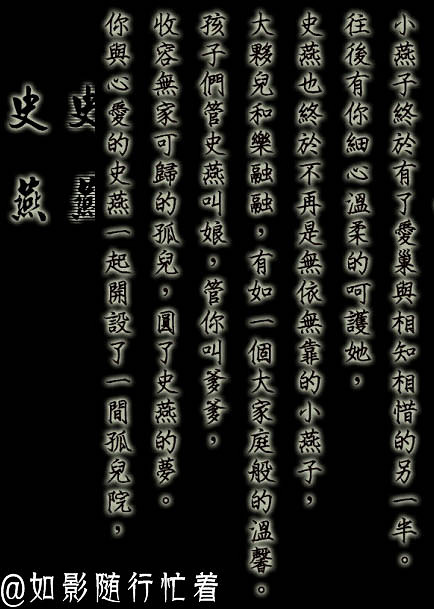 史燕
你與心愛的史燕一起開設了一間孤兒院，
收容無家可歸的孤兒，圓了史燕的夢。
孩子們管史燕叫娘，管你叫爹爹，
大夥兒和樂融融，有如一個大家庭般的溫馨。
史燕也終於不再是無依無靠的小燕子，
往後有你細心溫柔的呵護她，
小燕子終於有了愛巢與相知相惜的另一半。
@如影随行忙着